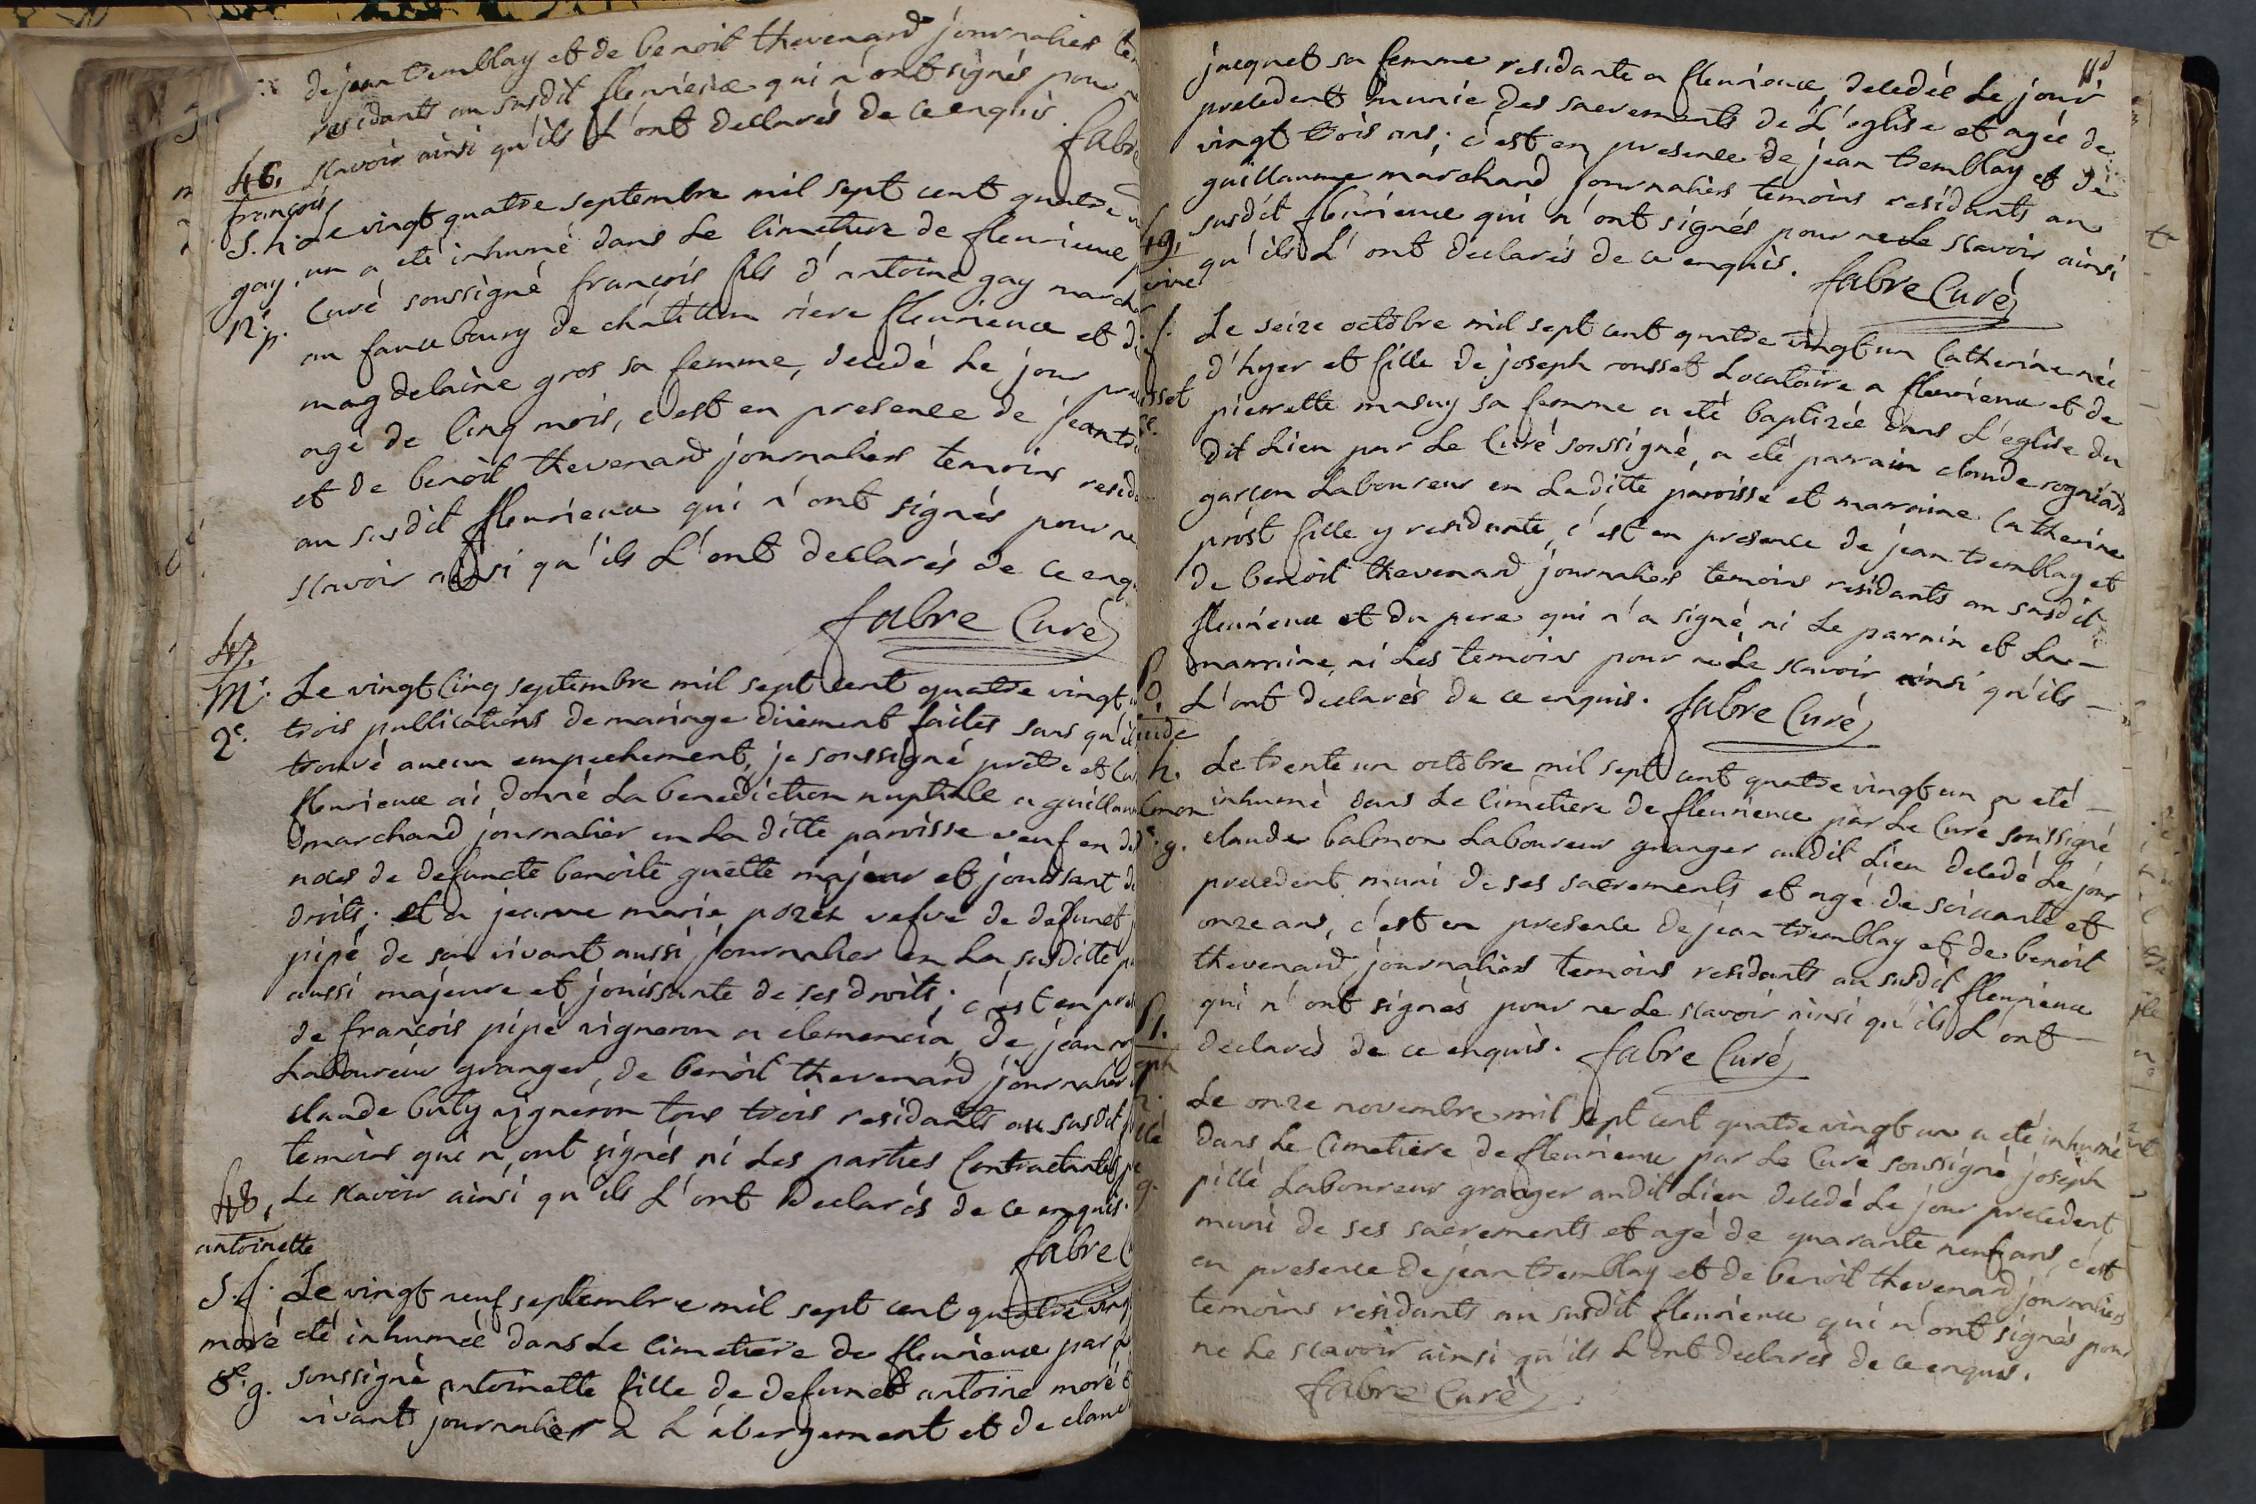 de jean tremblay et de benoit thevenard journaliers
residants au susdit fleurieux qui n'ont signés pour
scavoir ainsi qu'ils L'ont declarés de ce enquis.
fabre
46,
françois
S. h.
gay.
12e. p.
Le vingt quatre septembre mil sept cent quatre
un a eté inhumé dans Le Cimetiere de fleurieux
Curé soussigné françois fils d'antoine gay march
au fauxbourg de châtillon riere fleurieux et d
magdelaine gros sa femme, decedé Le jour pre
agé de Cinq mois, c'est en presence de jean
et de benoit thevenard journaliers temoins resid
au susdit fleurieux qui n'ont signés pour ne
scavoir ainsi qu'ils L'ont declarés de ce enq
fabre Curé
47,
M.
2e.
Le vingt Cinq septembre mil sept cent quatre vingt
trois publications de mariage duement faites sans qu'il
trouvé aucun empechement, je soussigné prêtre et Cu
fleurieux ai donné La benediction nuptiale a guillau
marchand journalier en La ditte paroisse veuf en d
noces de defuncte benoite guette majeur et jouissant d
droits; et a jeanne marie vefve de defunct
pipé de son vivant aussi journalier en La susditte p
aussi majeure et jouissante de ses droits; c'est en pre
de françois pipé vigneron a clemencia, de jean
Laboureur granger, de benoit thevenard journalier
claude buty vigneron tous trois residants au susdit
temoins qui n'ont signés ni Les parties Contractantes
Le scavoir ainsi qu'ils L'ont declarés de ce enquis.
fabre C
48,
antoinette
S. f.
moré
8e. g.
Le vingt neuf septembre mil sept cent quatre ving
eté inhumée dans Le Cimetiere de fleurieux par
soussigné antoinette fille de defunct antoine moré
vivant journalier a L'abergement et de claud
jacquet sa femme residante a fleurieux decedée Le jour
precedent munie des sacrements de L'eglise et agée de
vingt trois ans; c'est en presence de jean tremblay et de
guillaume marchand journaliers temoins residants au
susdit fleurieux qui n'ont signés pour ne Le scavoir ainsi
qu'ils L'ont declarés de ce enquis. fabre Curé
49,
rine
f.
sset
Le seize octobre mil sept cent quatre vingt un Catherine née
d'hyer et fille de joseph rousset Locataire a fleurieux et de
pierrette masuy sa femme a eté baptizée dans L'eglise du
dit Lieu par Le Curé soussigné, a eté parrain claude rogniard
garçon Laboureur en La ditte paroisse et marraine Catherine
prost fille y residante, c'est en presence de jean tremblay et
de benoit thevenard journaliers temoins residants au susdit
fleurieux et du pere qui n'a signé ni Le parrain et La
marraine, ni Les temoins pour ne Le scavoir ainsi qu'ils
L'ont declarés de ce enquis. fabre Curé
0,
ude
h.
lmon
g.
Le trente un octobre mil sept cent quatre vingt un a eté
inhumé dans Le Cimetiere de fleurieux par Le Curé soussigné
claude balmon Laboureur granger audit Lieu decedé Le jour
precedent muni de ses sacrements et agé de soixante et
onze ans, c'est en presence de jean tremblay et de benoit
thevenard journaliers temoins residants au susdit fleurieux
qui n'ont signés pour ne Le scavoir ainsi qu'ils L'ont
declarés de ce enquis. fabre Curé
1.
eph
h.
llé
g.
Le onze novembre mil sept cent quatre vingt un a eté inhumé
dans Le Cimetiere de fleurieux par Le Curé soussigné joseph
pillé Laboureur granger audit Lieu decedé Le jour precedent
muni de ses sacrements et agé de quarante neuf ans, c'est
en presence de jean tremblay et de benoit thevenard journaliers
temoins residants au susdit fleurieux qui n'ont signés pour
ne Le scavoir ainsi qu'ils L'ont declarés de ce enquis.
fabre Curé